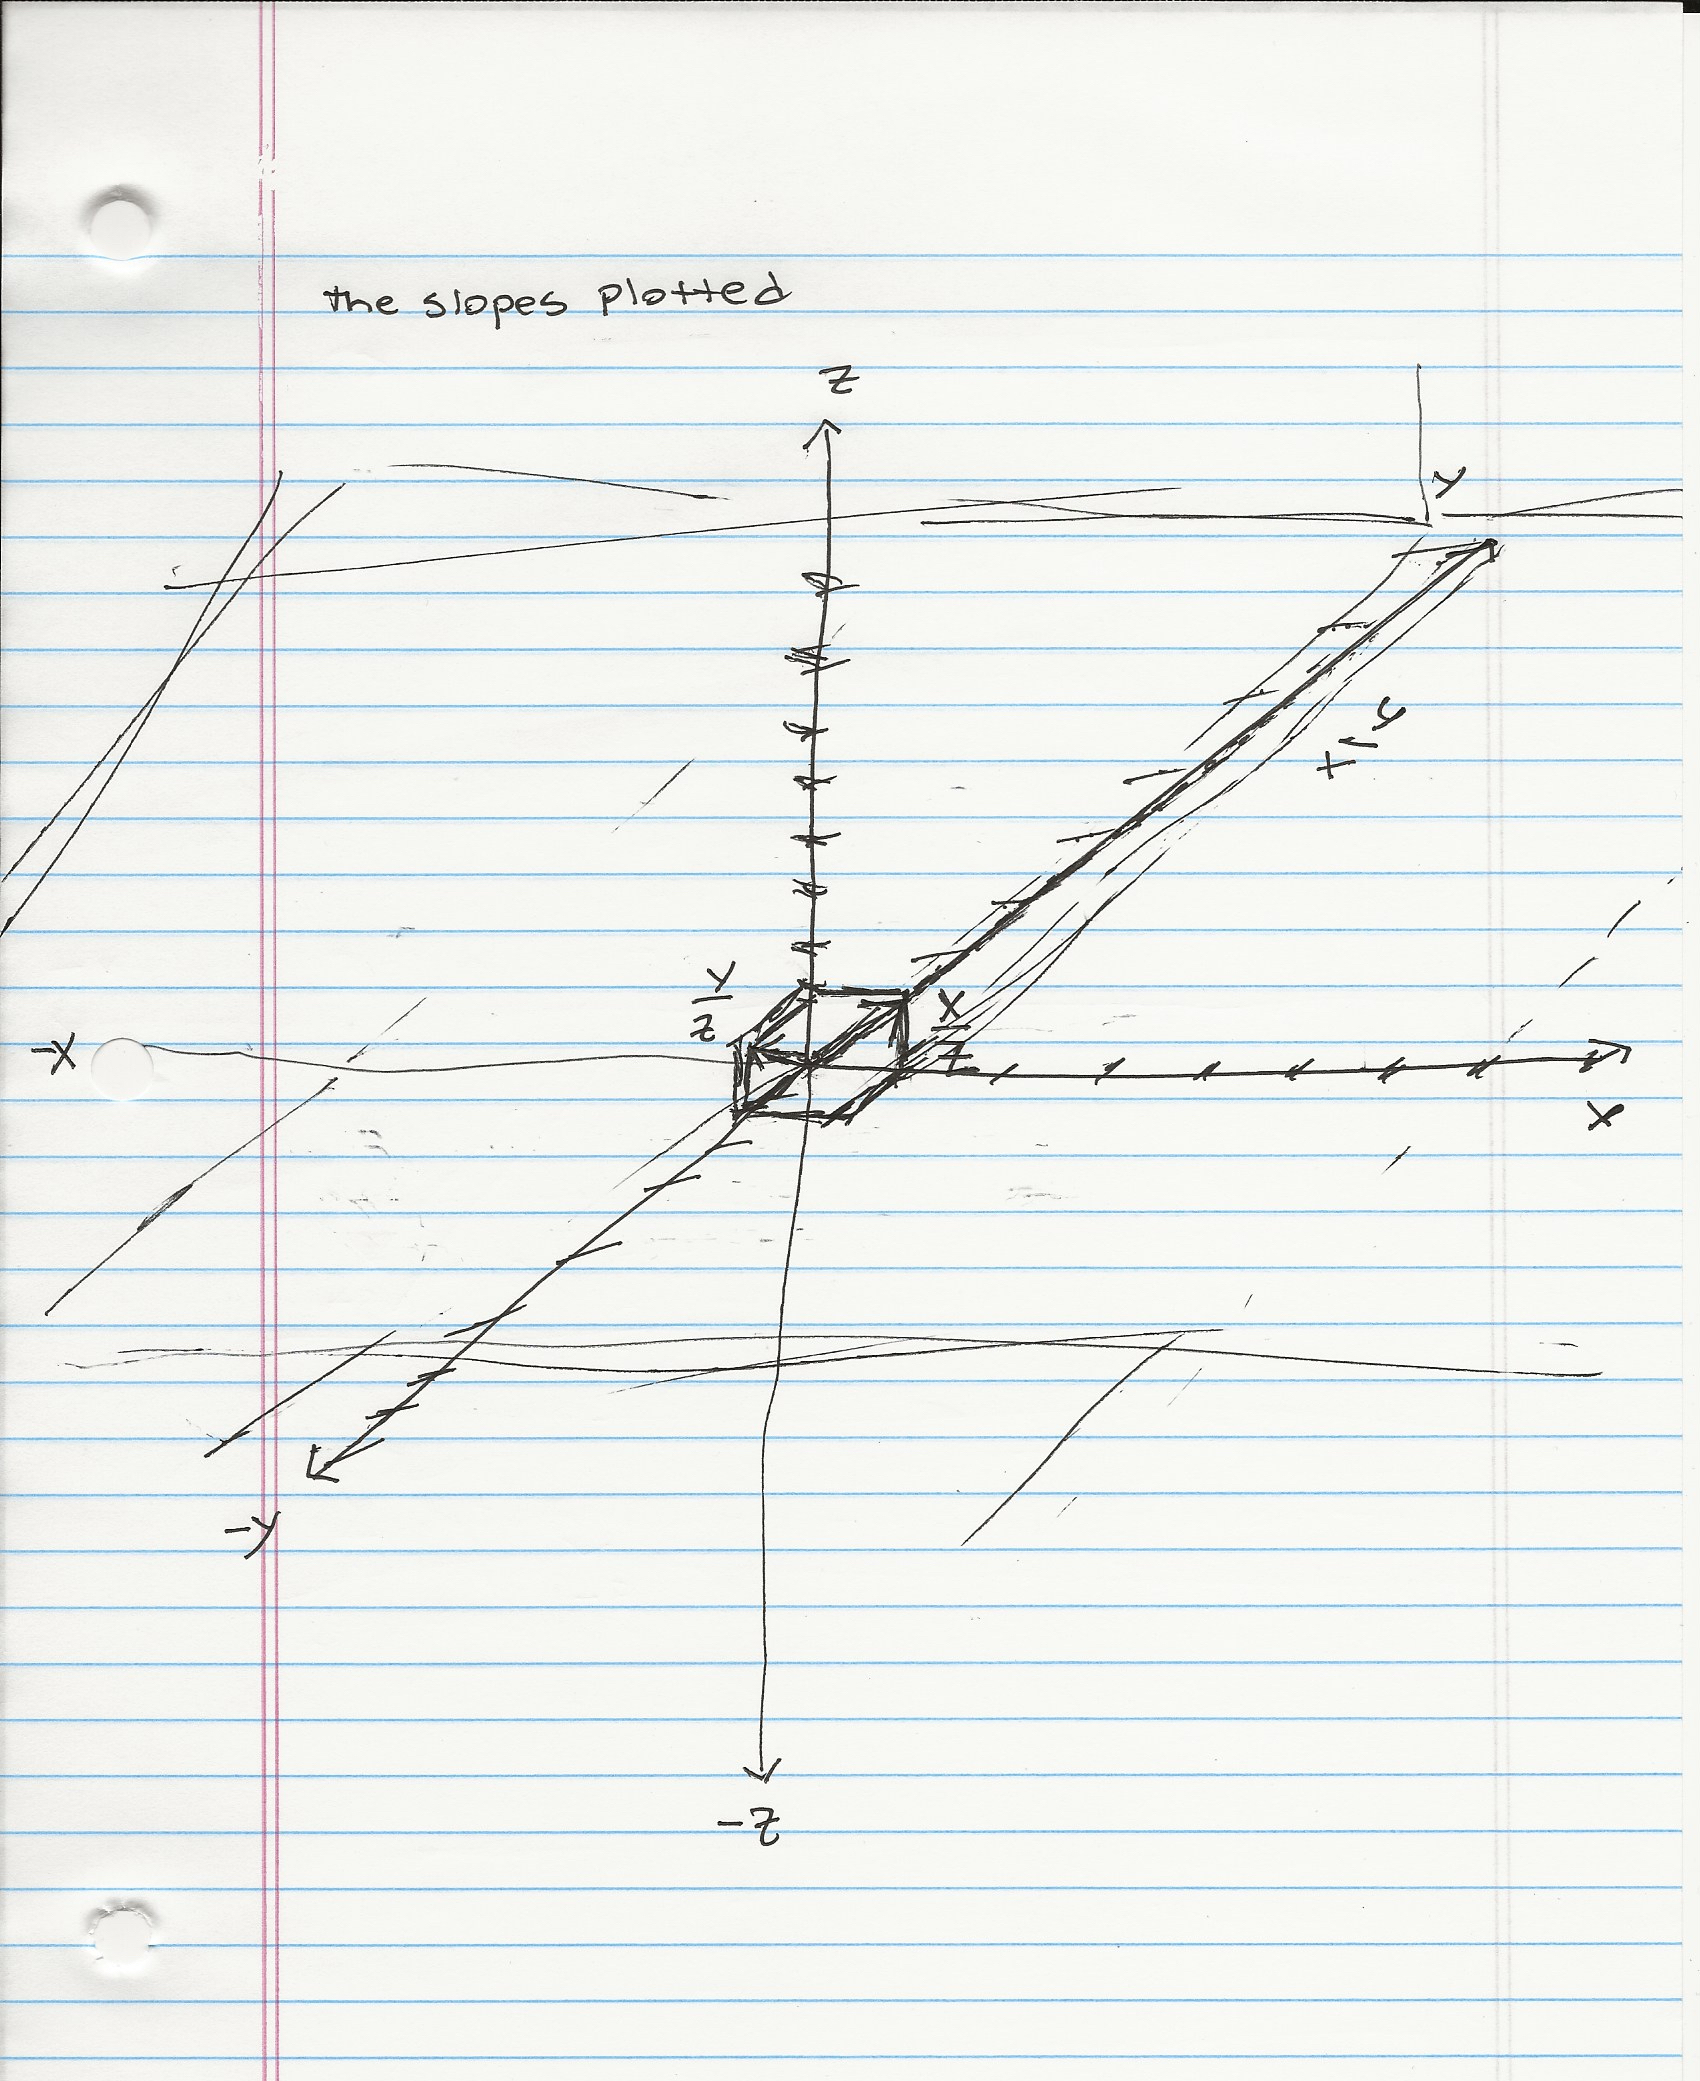 the slopes plotted
z
y
y
x
y
z
x
z
-x
x
-y
-z